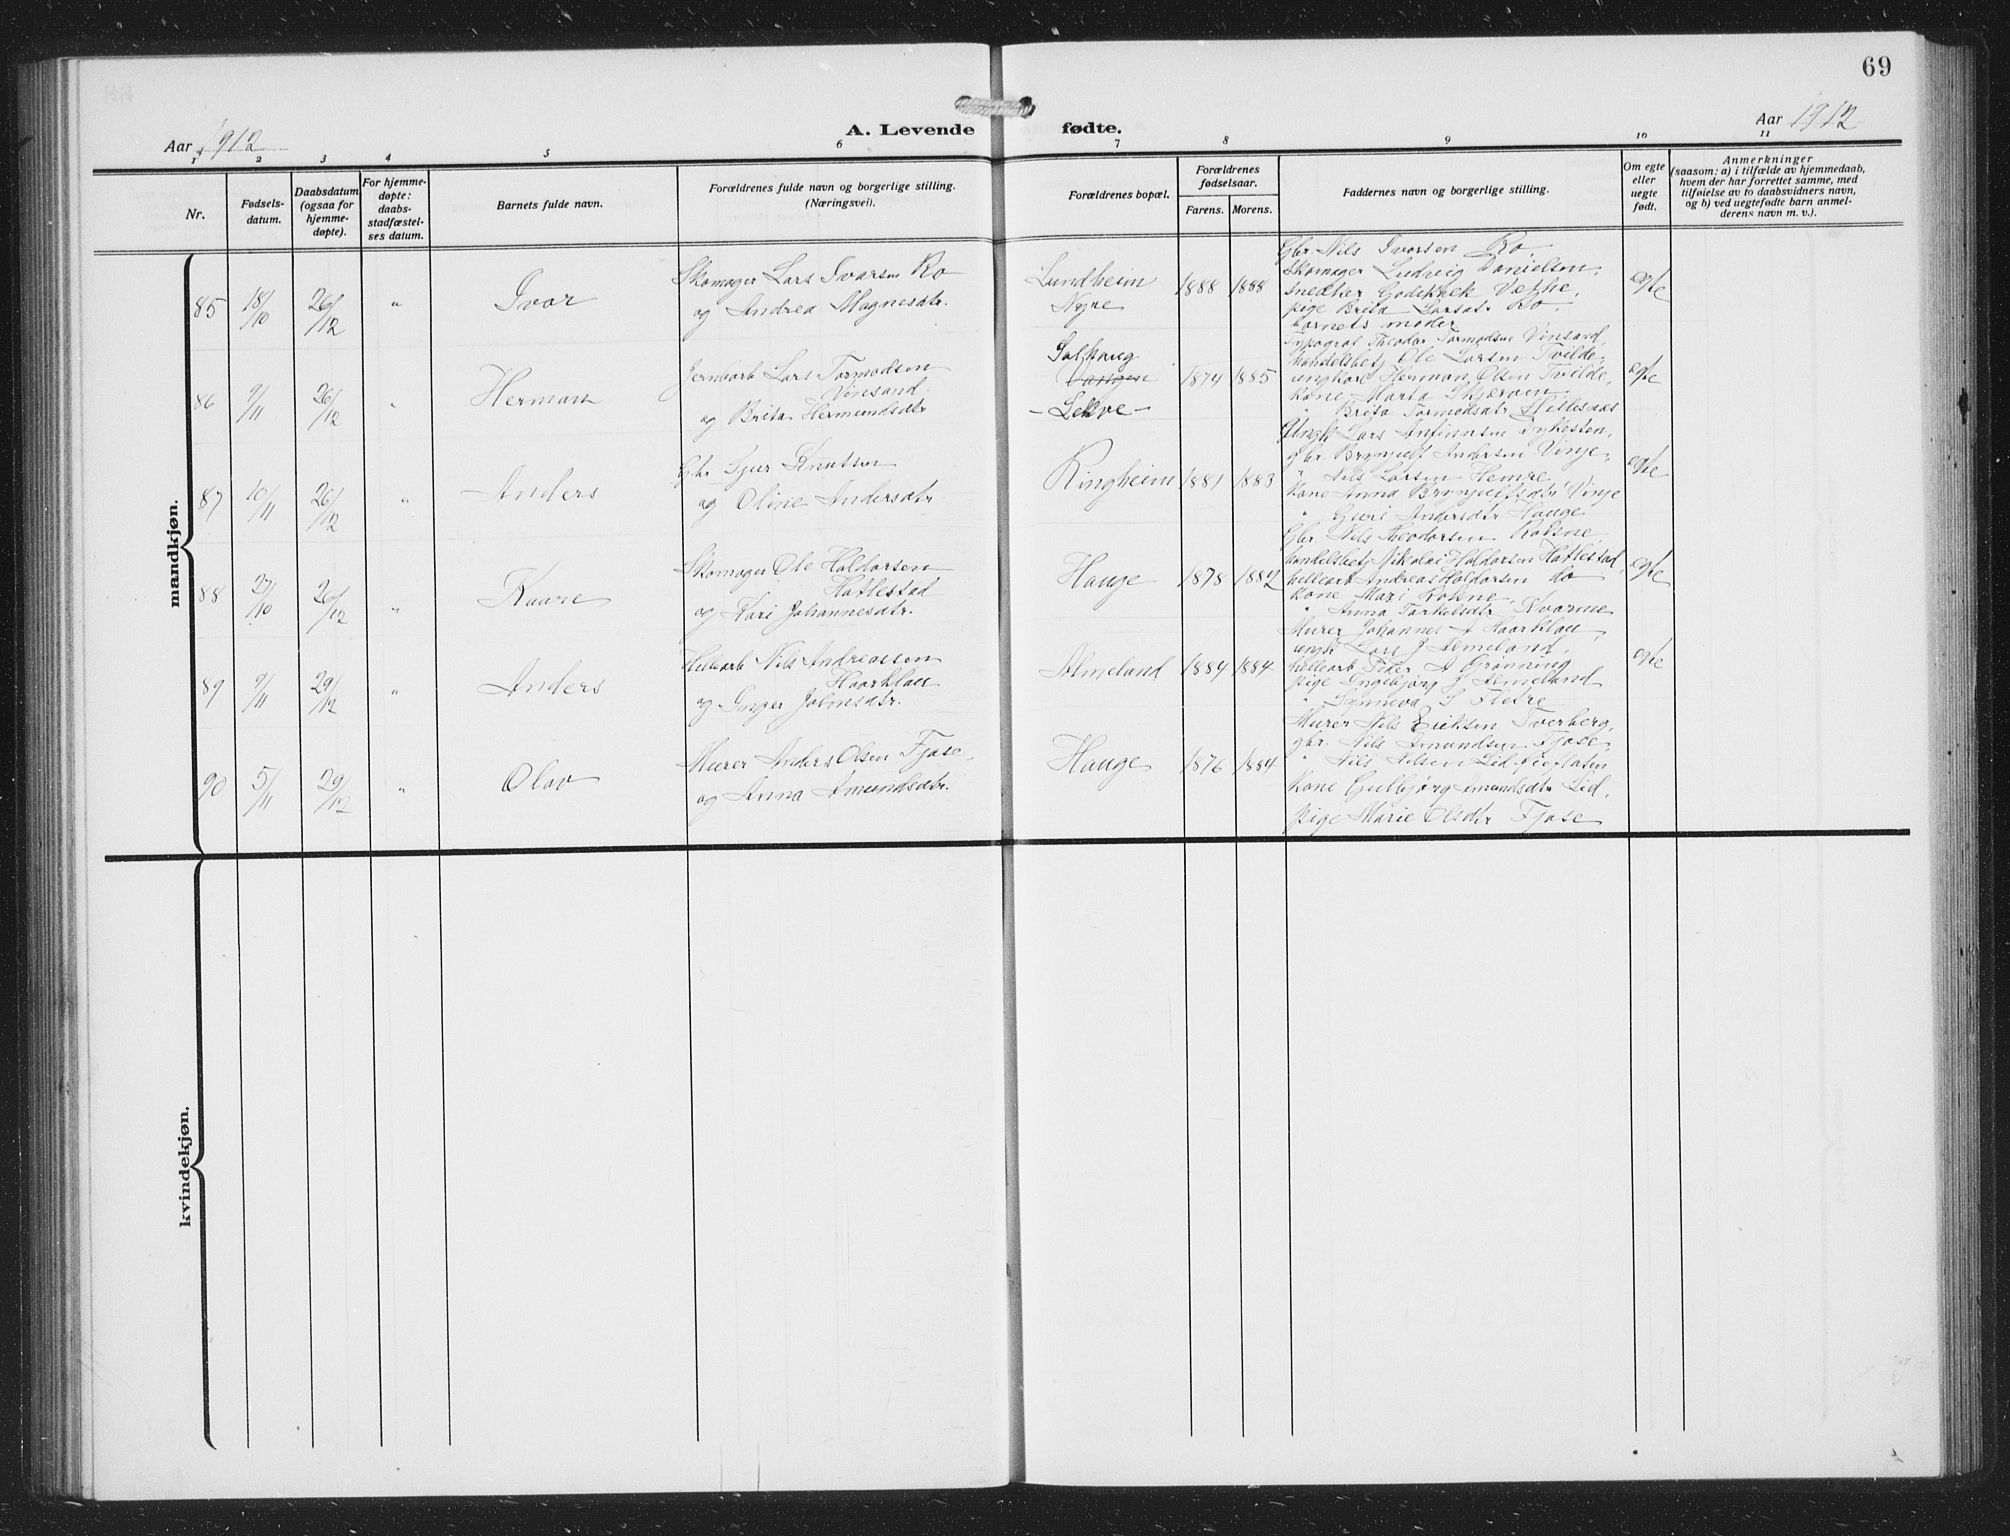 69
Aar 1912
A. Levende fødte.
Aar 1912
1 2 3 4 5 6 7 8 9 10 11
Nr.
Fødsels-
datum.
Daabsdatum
(ogsaa for
hjemme-
døpte).
For hjemme-
døpte:
daabs-
stadfæstel-
ses datum.
Barnets fulde navn.
Forældrenes fulde navn og borgerlige stilling.
(Næringsvei).
Forældrenes bopæl.
Forældrenes
fødselsaar.
Farens. Morens.
Faddernes navn og borgerlige stilling.
Om egte
eller
uegte
født.
Anmerkninger
(saasom: a) i tilfælde av hjemmedaab,
hvem der har forrettet samme, med
tilføielse av to daabsvidners navn,
og b) ved uegtefødte barn anmel-
derens navn m. v.).
mandkjøn.
85 18/10 26/12 " Ivar
Skomager Lars Ivarsen Ro
og Andrea Magnesdtr.
Lundheim
Nyre
1888 1888
Gbr. Nils Ivarsen Ro,
Skomager Ludvig Danielsen,
snedker Godskalk Væthe,
pige Brita Larsdtr Ro,
barnets moder
egte
86 9/11 26/12 " Herman
Jernbarb Lars Tormodsen
Vinsand
og Brita Hermundsdtr
Solhaug
Vangen
- Lekve -
1874 1885
Typograf Theodor Tormodsen Vinsand,
handelsbetj Ole Larsen Tvilde,
ungkarl Herman Olsen Tvilde,
kone Marta Skjerven,
" Brita Tormodsdtr Hellesnæs
egte
87 10/11 26/12 " Anders
Gbr Sjur Knutsen
og Oline Andersdtr
Ringheim
1881 1883
Ungk Lars Anfinnsen Dykesten,
gbr. Brynjulf Andersen Vinje,
" Nils Larsen Hemre,
kone Anna Brynjulfsdtr Vinje
" Guri Andersdtr Hauge
egte
88 27/10 26/12 " Kaare
Skomager Ole Haldorsen
Hatlestad
og Kari Johannesdtr.
Hauge
1878 1882
Gbr. Nils Theodorsen Rokne,
handelsbetj Nikolai Haldorsen Hatlestad,
hellearb Andreas Haldorsen do
kone Mari Rokne,
" Anna Torkelsdtr Kvarme
egte
89 9/11 29/12 " Anders
Hellearb Nils Andreassen
Haarklau
og Inger Johnsdtr.
Almeland
1884 1884
Murer Johannes A Haarklau,
ungk Lars J Aemeland,
hellearb Peder A Grønning
pige Ingebjørg J Aemeland
" Synneva S Fletre
egte
90 5/11 29/12 " Olav
Murer Anders Olsen Fjose,
og Anna Amundsdtr.
Hauge
1876 1884
Murer Nils Eriksen Tverberg,
gbr. Nils Amundsen Fjose,
" Nils Nilsen Lid
kone Gulbjørg Amundsdtr Lid,
pige Marie Olsdtr Fjose
kvindekjøn.